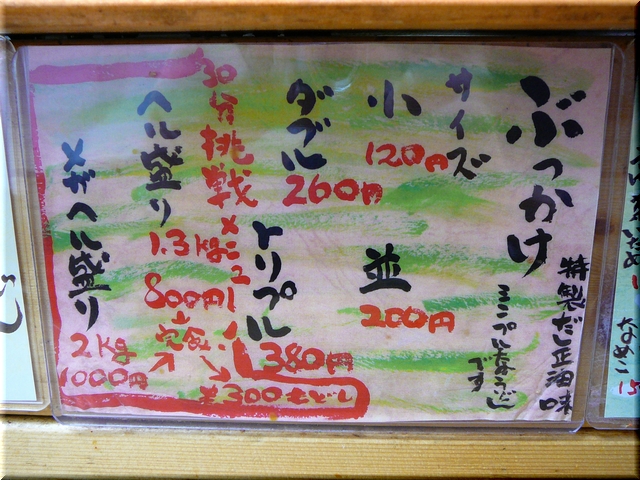 ぶっかけ
特製だし正油味
シンプルなうどん
です
サイズ
小
120円
並
200円
ダブル
260円
トリプル
380円
30分挑戦
メニュー
ヘル盛り
1.3kg
800円
完食
¥300もどし
メガヘル盛り
2kg
1000円
なめこ